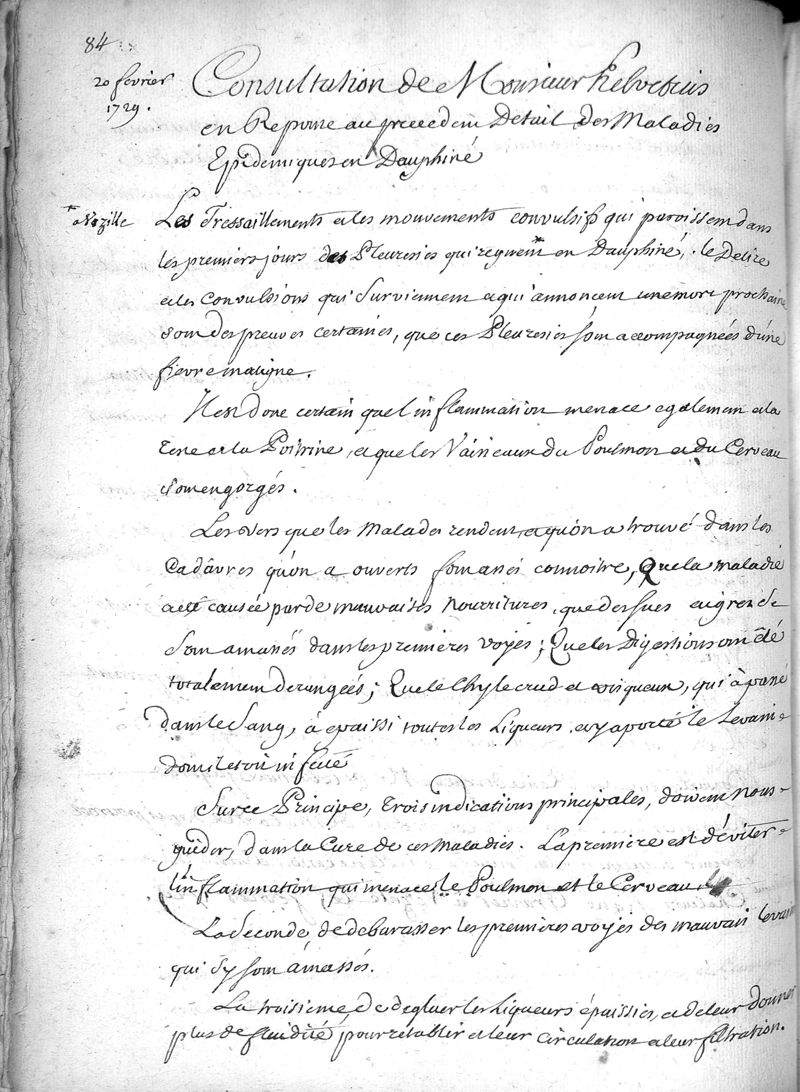 84
20 fevrier
1729.
Consultation de Monsieur helvetius
en Reponse au precedent Detail des Maladies
Epidemiques en Dauphiné
* a Vizille
Les Tressaillements et les mouvements convulsifs qui paroissent dans
les premiers jours des Pleuresies qui regnent* en Dauphiné, le Delire
et les convulsions qui surviennent et qui annoncent une mort prochaine
sont des preuves certaines, que ces Pleuresies sont accompagnées d'une
fievre maligne.
Il est donc certain que l'inflammation menace egalement et la
Teste et la Poitrine, et que les Vaisseaux du Poulmon et du Cerveau
sont engorgés.
Les vers que les Malades rendent, et qu'on a trouvé dans les
Cadâvres qu'on a ouverts font assés connoitre, Que la maladie
a eté causée par de mauvaises Nourritures, que des sucs aigres se
sont amassés dans les premieres voyes; Que les Digestions ont été
totalement derangeés; Que le Chyle crud et visqueux, qui à passé
dans le Sang, á epaissi toutes les Liqueurs et y a porté le Levain
dont il etoit infecté
Sur ce Principe, trois indications principales, doivent nous
guider, dans la Cure de ces Maladies. La premiere est d'éviter
l'inflammation qui menace le Poulmon et le Cerveau
La seconde de debarasser les premieres voyes des mauvais levains
qui s'y sont amassés.
La troisieme de deglüer les Liqueurs épaissies, et de leur donner
plus de fluidité, pour rétablir et leur circulation et leur filtration.